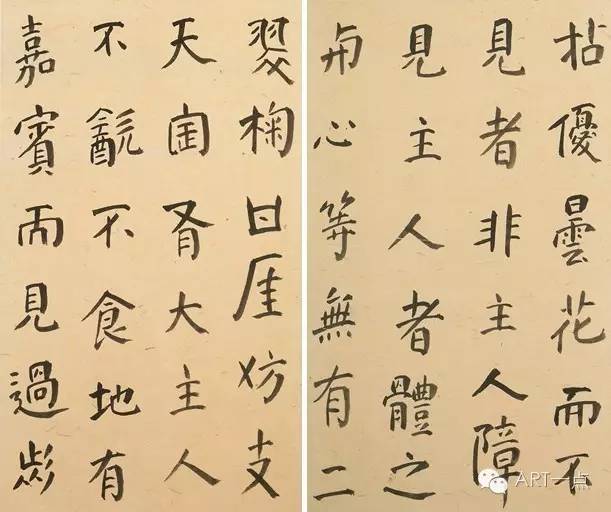 拈優曇花而不
見者非主人障
見主人者體之
心等無有二
日厓妨支
天胥大主人
不不食地有
嘉賓而見過
ART一点